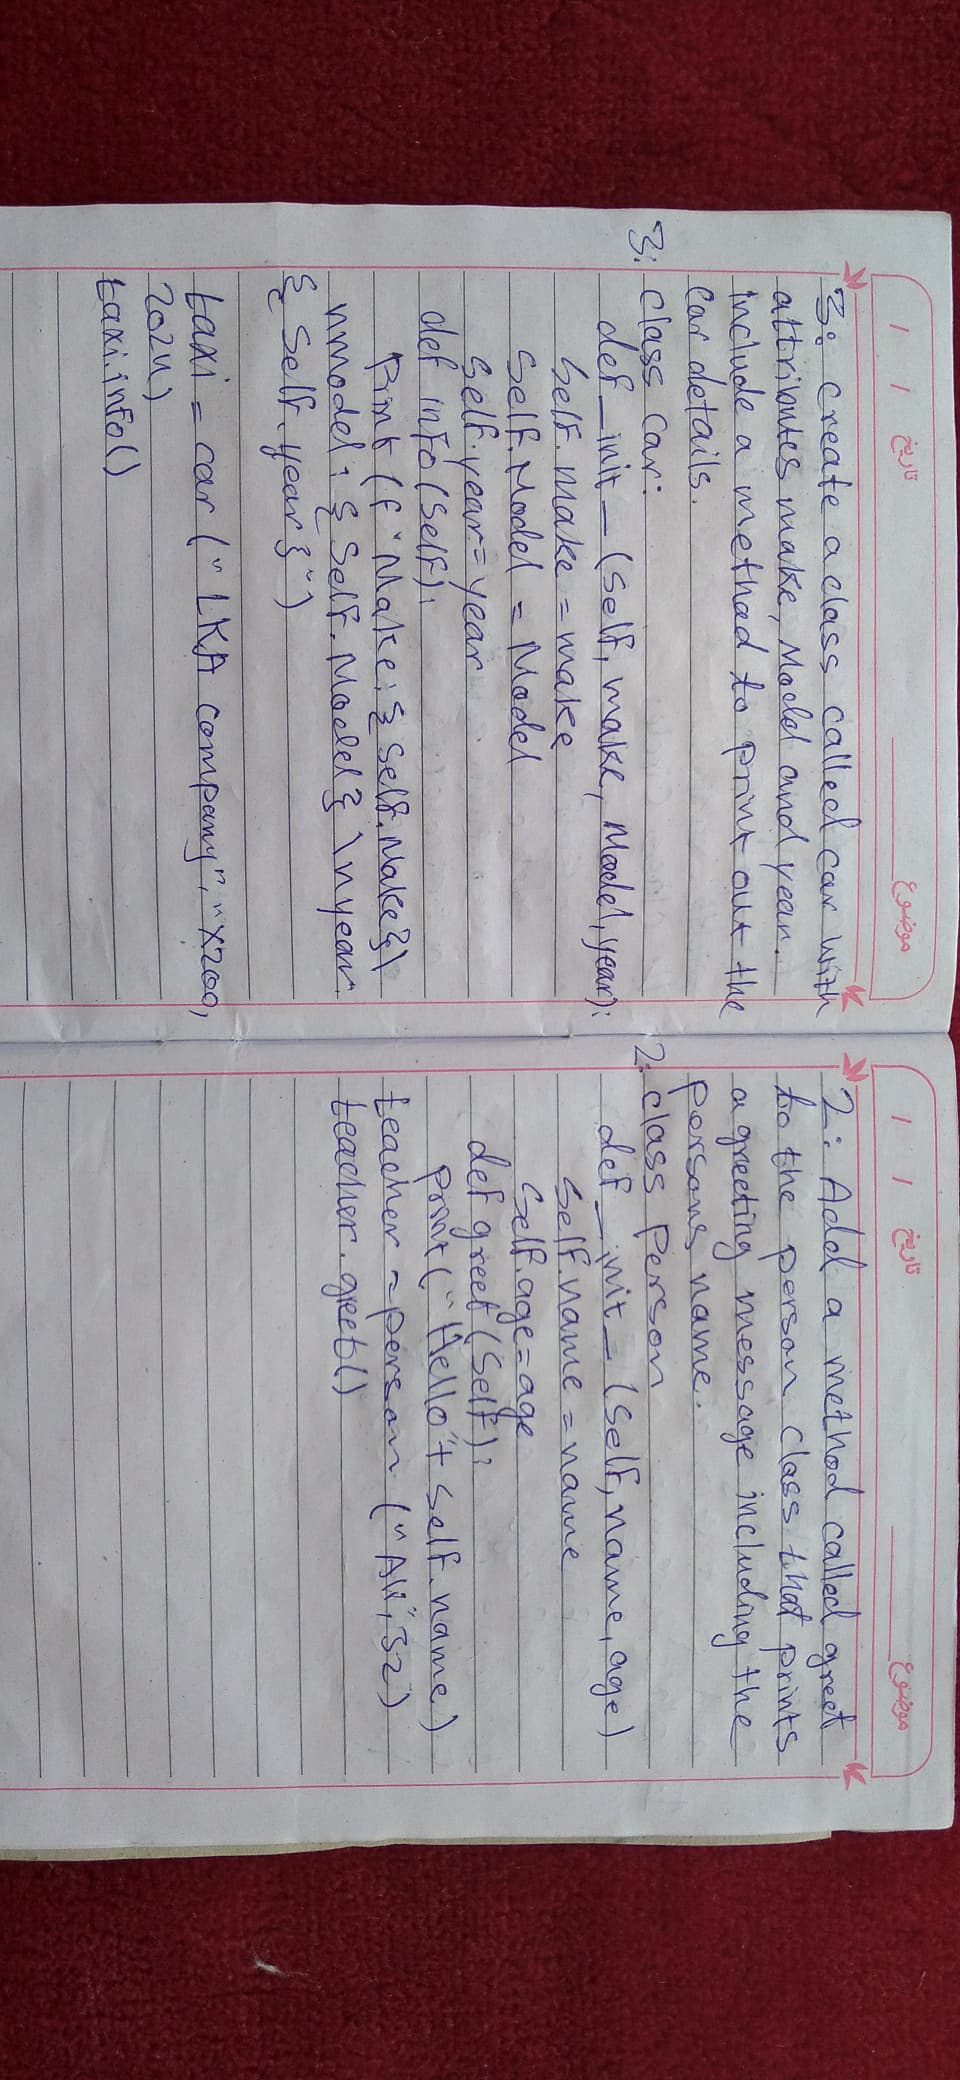 تاریخ / / موضوع
3: create a class called car with
attributes make, Model and year.
include a method to print out the
car details.
3: class car:
def _init_ (self, make, Model, year):
self.make = make
self.Model = Model
self.year = year
def info (self):
Print (f "Make: { self.Make } \
nmodel: { self.Model } \n year:
{ self.year }")
taxi = car (" LKA company", "X200,
2024)
taxi.info()
تاریخ / / موضوع
2: Add a method called greet
to the person class that prints
a greeting message including the
persons name.
2: class Person
def _init_ (self, name, age)
self.name = name
self.age = age
def greet (self):
print( "Hello" + self.name)
teacher = person ("Ali", 32)
teacher.greet()